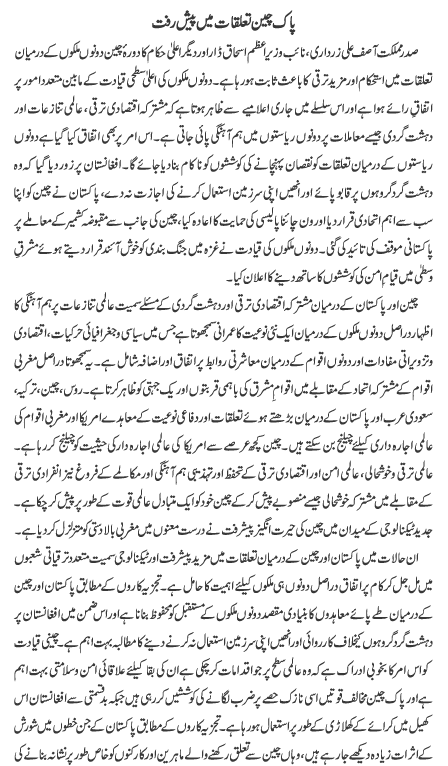 پاک چین تعلقات میں پیش رفت
صدر مملکت آصف علی زرداری، نائب وزیراعظم اسحاق ڈار اور دیگر اعلیٰ حکام کا دورہ چین دونوں ملکوں کے درمیان
تعلقات میں استحکام اور مزید ترقی کا باعث ثابت ہورہا ہے۔ دونوں ملکوں کی اعلیٰ سطحی قیادت کے مابین متعدد امور پر
اتفاق رائے ہوا ہے اور اس سلسلے میں جاری اعلامیے سے ظاہر ہوتا ہے کہ مشترکہ اقتصادی ترقی، عالمی تنازعات اور
دہشت گردی جیسے معاملات پر دونوں ریاستوں میں ہم آہنگی پائی جاتی ہے۔ اس امر پر بھی اتفاق کیا گیا ہے دونوں
ریاستوں کے درمیان تعلقات کو نقصان پہنچانے کی کوششوں کو ناکام بنادیا جائے گا۔ افغانستان پر زور دیا گیا کہ وہ
دہشت گرد گروہوں پر قابو پائے اور انھیں اپنی سرزمین استعمال کرنے کی اجازت نہ دے، پاکستان نے چین کو اپنا
سب سے اہم اتحادی قرار دیا اور ون چائنا پالیسی کی حمایت کا اعادہ کیا، چین کی جانب سے مقبوضہ کشمیر کے معاملے پر
پاکستانی موقف کی تائید کی گئی۔ دونوں ملکوں کی قیادت نے غزہ میں جنگ بندی کو خوش آئند قرار دیتے ہوئے مشرق
وسطیٰ میں قیام امن کی کوششوں کا ساتھ دینے کا اعلان کیا۔
چین اور پاکستان کے درمیان مشترکہ اقتصادی ترقی اور دہشت گردی کے مسئلے سمیت عالمی تنازعات پر ہم آہنگی کا
اظہار دراصل دونوں ملکوں کے درمیان ایک نئی نوعیت کا عمرانی سمجھوتا ہے جس میں سیاسی و جغرافیائی حرکیات، اقتصادی
و تزویراتی مفادات اور دونوں اقوام کے درمیان معاشرتی روابط پر اتفاق اور اضافہ شامل ہے۔ یہ سمجھوتا دراصل مغربی
اقوام کے مشترکہ اتحاد کے مقابلے میں اقوامِ مشرق کی باہمی قربتوں اور یک جہتی کو ظاہر کرتا ہے۔ روس، چین، ترکیہ،
سعودی عرب اور پاکستان کے درمیان بڑھتے ہوئے تعلقات اور دفاعی نوعیت کے معاہدے امریکا اور مغربی اقوام کی
عالمی اجارہ داری کیلئے چیلنج بن سکتے ہیں۔ چین کچھ عرصے سے امریکا کی عالمی اجارہ داری کی حیثیت کو چیلنج کررہا ہے۔
عالمی ترقی و خوشحالی، عالمی امن اور اقتصادی ترقی کے تحفظ اور تہذیبی ہم آہنگی اور مکالمے کے فروغ نیز انفرادی ترقی
کے مقابلے میں مشترکہ خوشحالی جیسے منصوبے پیش کرکے چین خود کو ایک متبادل عالمی قوت کے طور پر پیش کرچکا ہے۔
جدید ٹیکنالوجی کے میدان میں چین کی حیرت انگیز پیشرفت نے درست معنوں میں مغربی بالادستی کو متزلزل کردیا ہے۔
ان حالات میں پاکستان اور چین کے درمیان تعلقات میں مزید پیشرفت اور ٹیکنالوجی سمیت متعدد ترقیاتی شعبوں
میں مل جل کر کام پر اتفاق دراصل دونوں ہی ملکوں کیلئے اہمیت کا حامل ہے۔ تجزیہ کاروں کے مطابق پاکستان اور چین
کے درمیان طے پائے معاہدوں کا بنیادی مقصد دونوں ملکوں کے مستقبل کو محفوظ بنانا ہے اور اس ضمن میں افغانستان پر
دہشت گرد گروہوں کیخلاف کارروائی اور انھیں اپنی سرزمین استعمال نہ کرنے دینے کا مطالبہ بہت اہم ہے۔ چینی قیادت
کو اس امر کا بخوبی ادراک ہے کہ وہ عالمی سطح پر جو اقدامات کرچکی ہے ان کی بقا کیلئے علاقائی امن و سلامتی بہت اہم
ہے اور پاک چین مخالف قوتیں اسی نازک حصے پر ضرب لگانے کی کوششیں کررہی ہیں جبکہ بدقسمتی سے افغانستان اس
کھیل میں کرائے کے کھلاڑی کے طور پر استعمال ہورہا ہے۔ تجزیہ کاروں کے مطابق پاکستان کے جن خطوں میں شورش
کے اثرات زیادہ دیکھے جارہے ہیں، وہاں چین سے تعلق رکھنے والے ماہرین اور کارکنوں کو خاص طور پر نشانہ بنانے کی